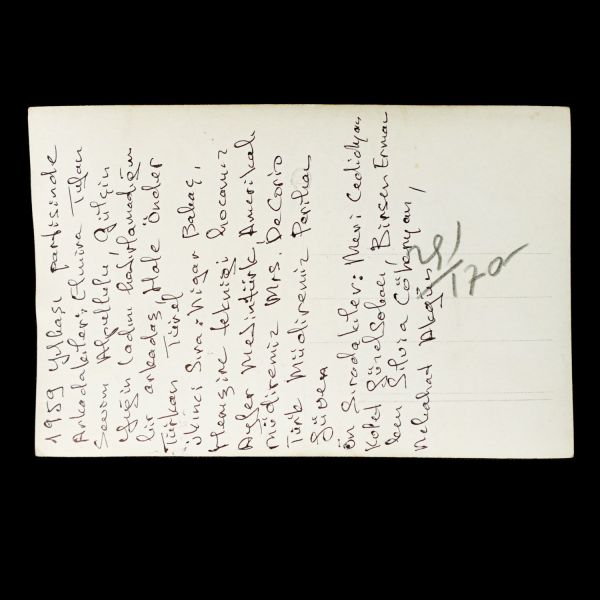 1959 yılbaşı partisinde
Arkadakiler: Elmira Tufan
Sevim Alpullulu, Gülçin
Yiğin (adını hatırlamadığım
bir arkadaş, Hale Önder
Türkan Türel
ikinci Sıra: Nigar Babaç,
Hemşire tekniği hocamız
Ayfer Mesintürk, Amerikalı
müdiremiz Mrs. DeCorio
Türk Müdiremiz Perihan
Güven
Ön Sıradakiler: Meri Cedidyan
Kolet Güzelsobacı, Birsen Erman
ben Silvia Cökenyan,
Nebahat Akgün
29/170